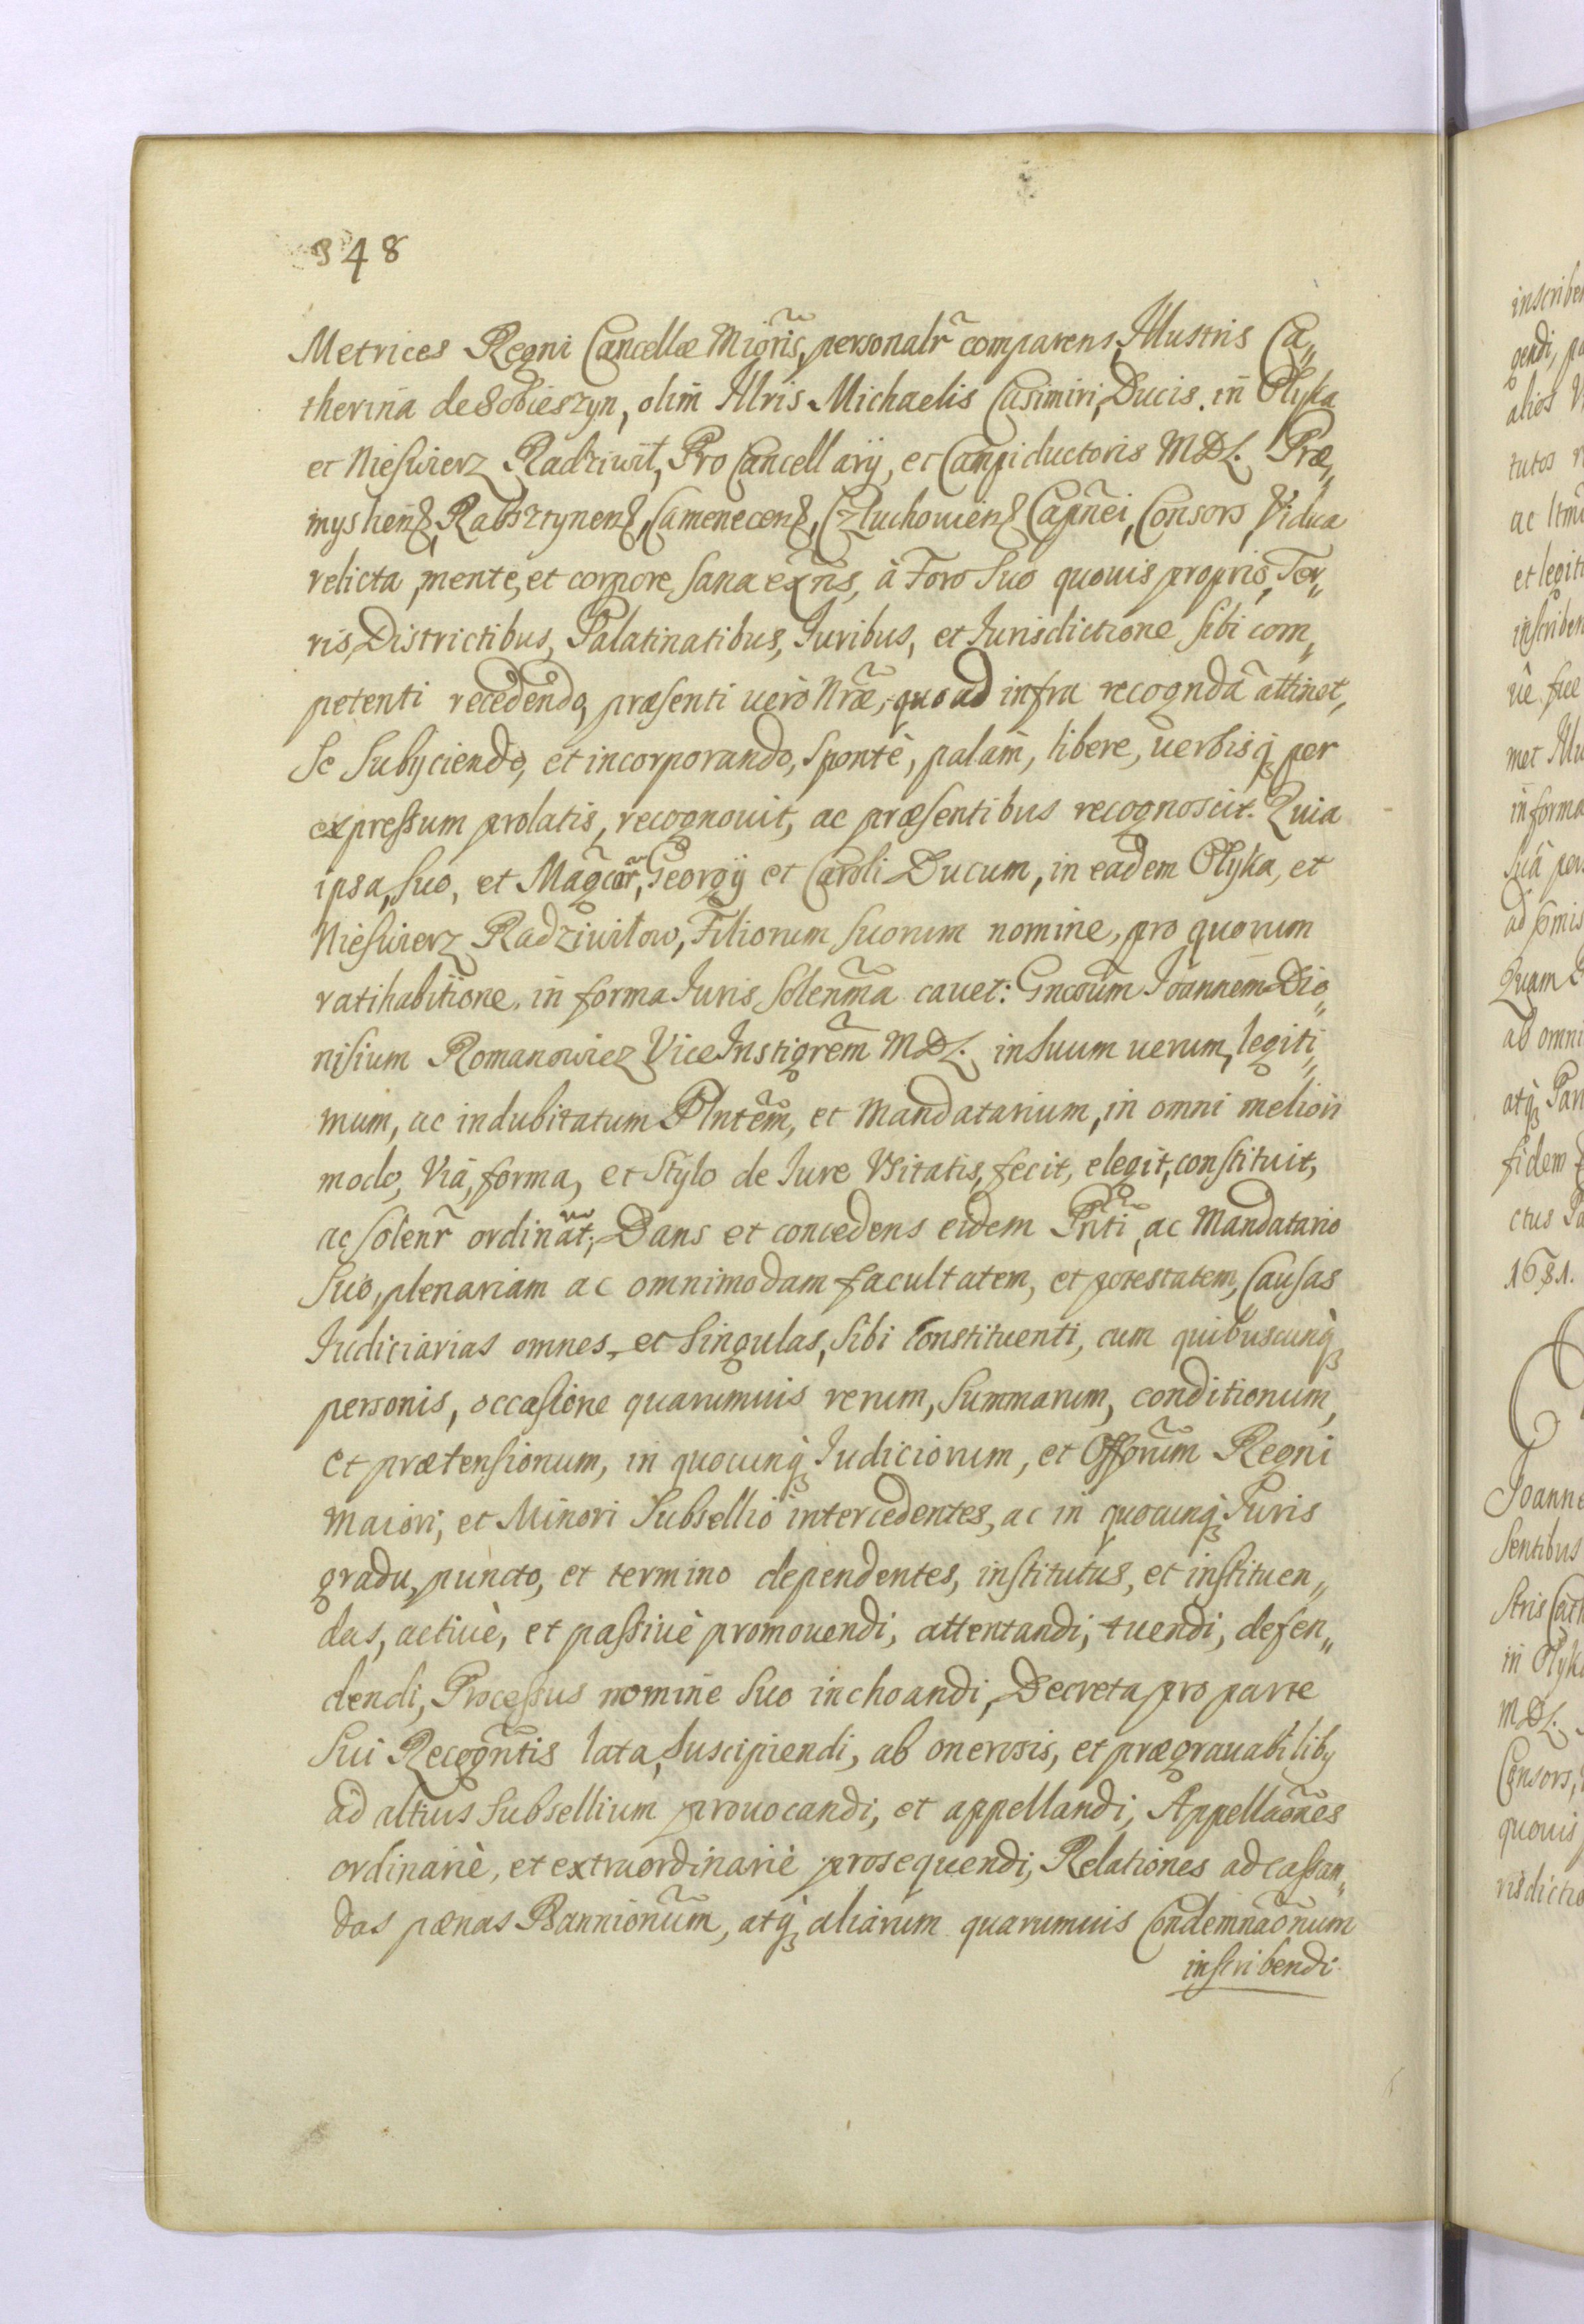 348
Metrices Regni Cancellæ Mioris, personalr comparens, Illustris Ca„
therina de Sobieszyn, olim Illris Michaelis Casimiri, Ducis in Olyka
et Nieswierz Radziwił, Pro Cancellarij, et Campiductoris MDL. Præ„
myslien, Rabsztynen, Camenecen, Człuchowien Capnei, Consors Vidua
relicta, mente, et corpore sana exns, à Foro suo quovis proprio, Ter„
ris, Districtibus, Palatinatibus, Iuribus, et Iurisdictione sibi com„
petenti recedendo, præsenti verò Nræ, quoad infra recognda attinet,
Se Subijciendo, et incorporando, Spontè, palam, libere, verbisq per
expressum prolatis, recognovit, ac præsentibus recognoscit. Quia
ipsa, suo, et Magcor, Georgij et Caroli Ducum, in eadem Olyka, et
Nieswierz Radziwiłow, Filiorum Suorum nomine, pro quorum
ratihabitione, in forma Iuris Solenma cavet: Gncoum Joannem Dio„
nisium Romanowicz Vice Instigrem MDL. in suum verum, legiti„
mum, ac indubitatum Plntem, et Mandatarium, in omni meliori
modo, Viâ, forma, et Stylo de Iure Usitatis, fecit, elegit, constituit,
ac solenr ordinat; Dans et concedens eidem Pnti, ac Mandatario
Suo, plenariam ac omnimodam facultatem, et potestatem, Causas
Iudiciarias omnes, et Singulas, Sibi Constituenti, cum quibuscunq
personis, occasione quarumvis rerum, Summarum, conditionum,
et prætensionum, in quocunq Iudiciorum, et Offorum Regni
Maiori, et Minori Subsellio intercedentes, ac in quocunq Iuris
gradu, puncto, et termino dependentes, institutus, et instituen„
das, activè, et passivè promovendi, attentandi, tuendi, defen„
dendi, Processus nomine Suo inchoandi, Decreta pro parte
Sui Recogntis lata, Suscipiendi, ab onerosis, et prægravabiliby
ad altius Subsellium provocandi, et appellandi, Appellaones
ordinariè, et extraordinariè prosequendi, Relationes ad cassan„
das pœnas Bannionum, atq aliarum quarumvis Condemnaonum
inscribendi